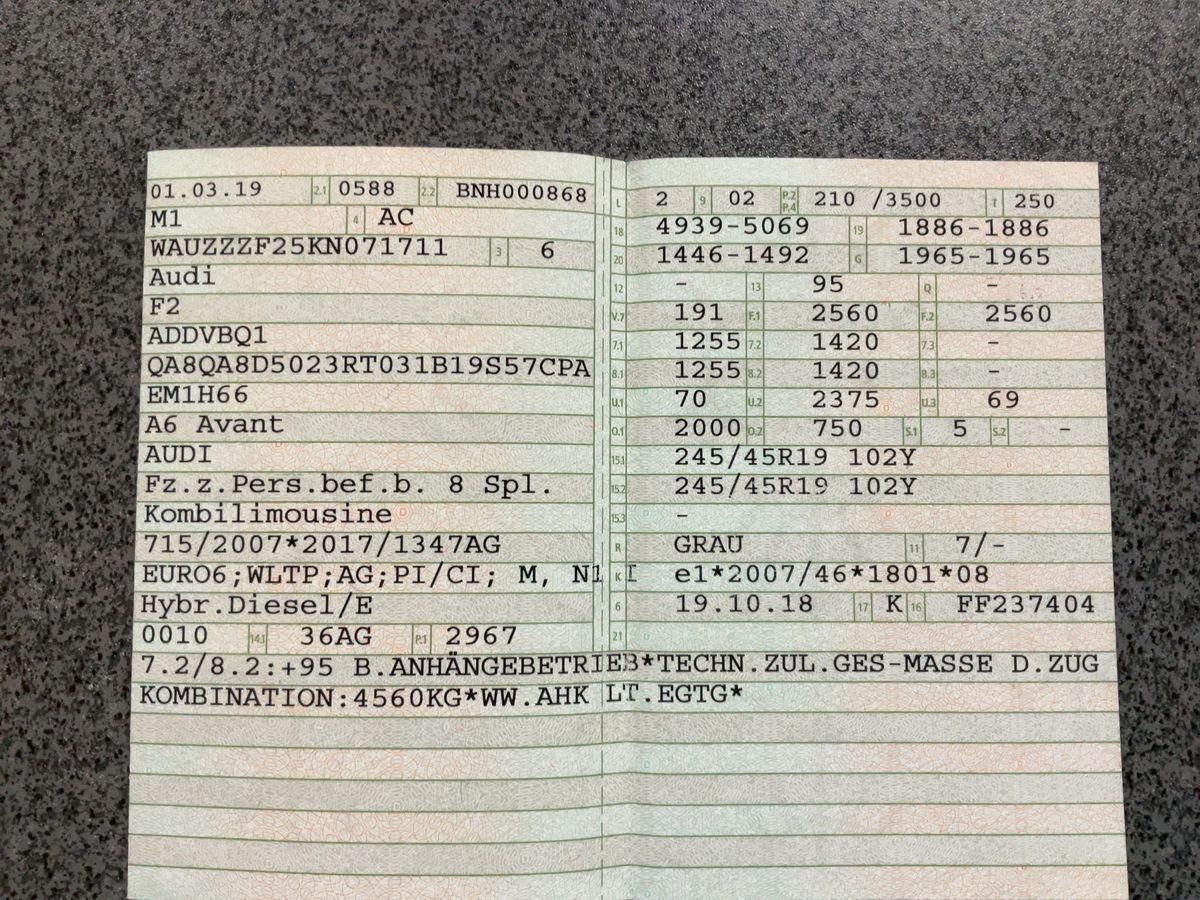 01.03.19 2.1 0588 2.2 BNH000868 L 2 9 02 P.2 P.4 210 /3500 T 250
M1 4 AC 18 4939-5069 19 1886-1886
WAUZZZF25KN071711 3 6 20 1446-1492 G 1965-1965
Audi 12 - 13 95 Q -
F2 V.7 191 F.1 2560 F.2 2560
ADDVBQ1 7.1 1255 7.2 1420 7.3 -
QA8QA8D5023RT031B19S57CPA 8.1 1255 8.2 1420 8.3 -
EM1H66 U.1 70 U.2 2375 U.3 69
A6 Avant O.1 2000 O.2 750 S.1 5 S.2 -
AUDI 15.1 245/45R19 102Y
Fz.z.Pers.bef.b. 8 Spl. 15.2 245/45R19 102Y
Kombilimousine 15.3 -
715/2007*2017/1347AG R GRAU 11 7/-
EURO6;WLTP;AG;PI/CI; M, N1 I K e1*2007/46*1801*08
Hybr.Diesel/E 6 19.10.18 17 K 16 FF237404
0010 14.1 36AG P.1 2967 21
7.2/8.2:+95 B.ANHÄNGEBETRIEB*TECHN.ZUL.GES-MASSE D.ZUG
KOMBINATION:4560KG*WW.AHK LT.EGTG*